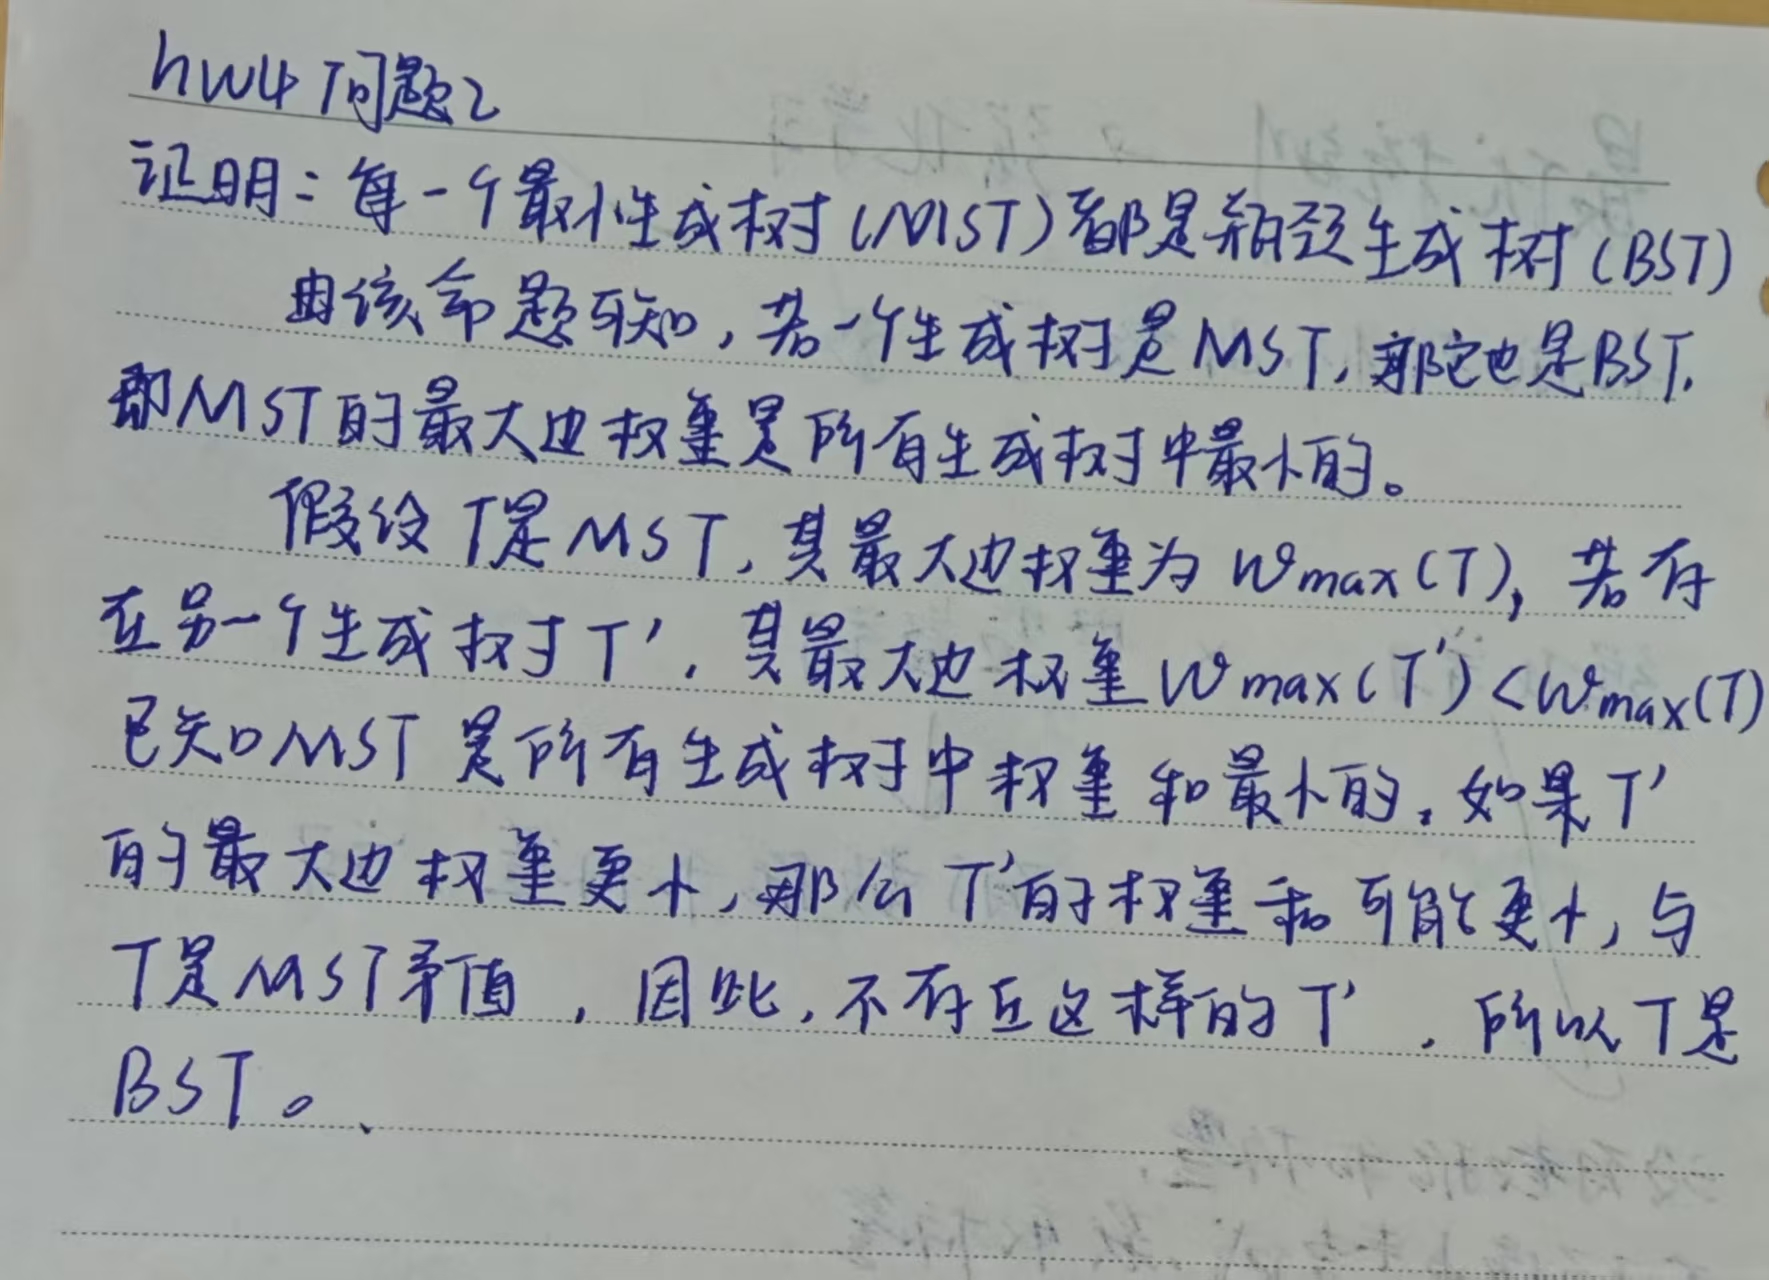 hw4 问题2
证明：每一个最小生成树(MST)都是瓶颈生成树(BST)
由该命题可知，若一个生成树是MST，那它也是BST，
即MST的最大边权重是所有生成树中最小的。
假设T是MST，其最大边权重为Wmax(T)，若存
在另一个生成树T'，其最大边权重Wmax(T')<Wmax(T)
已知MST是所有生成树中权重和最小的。如果T'
的最大边权重更小，那么T'的权重和可能更小，与
T是MST矛值，因此，不存在这样的T'，所以T是
BST。